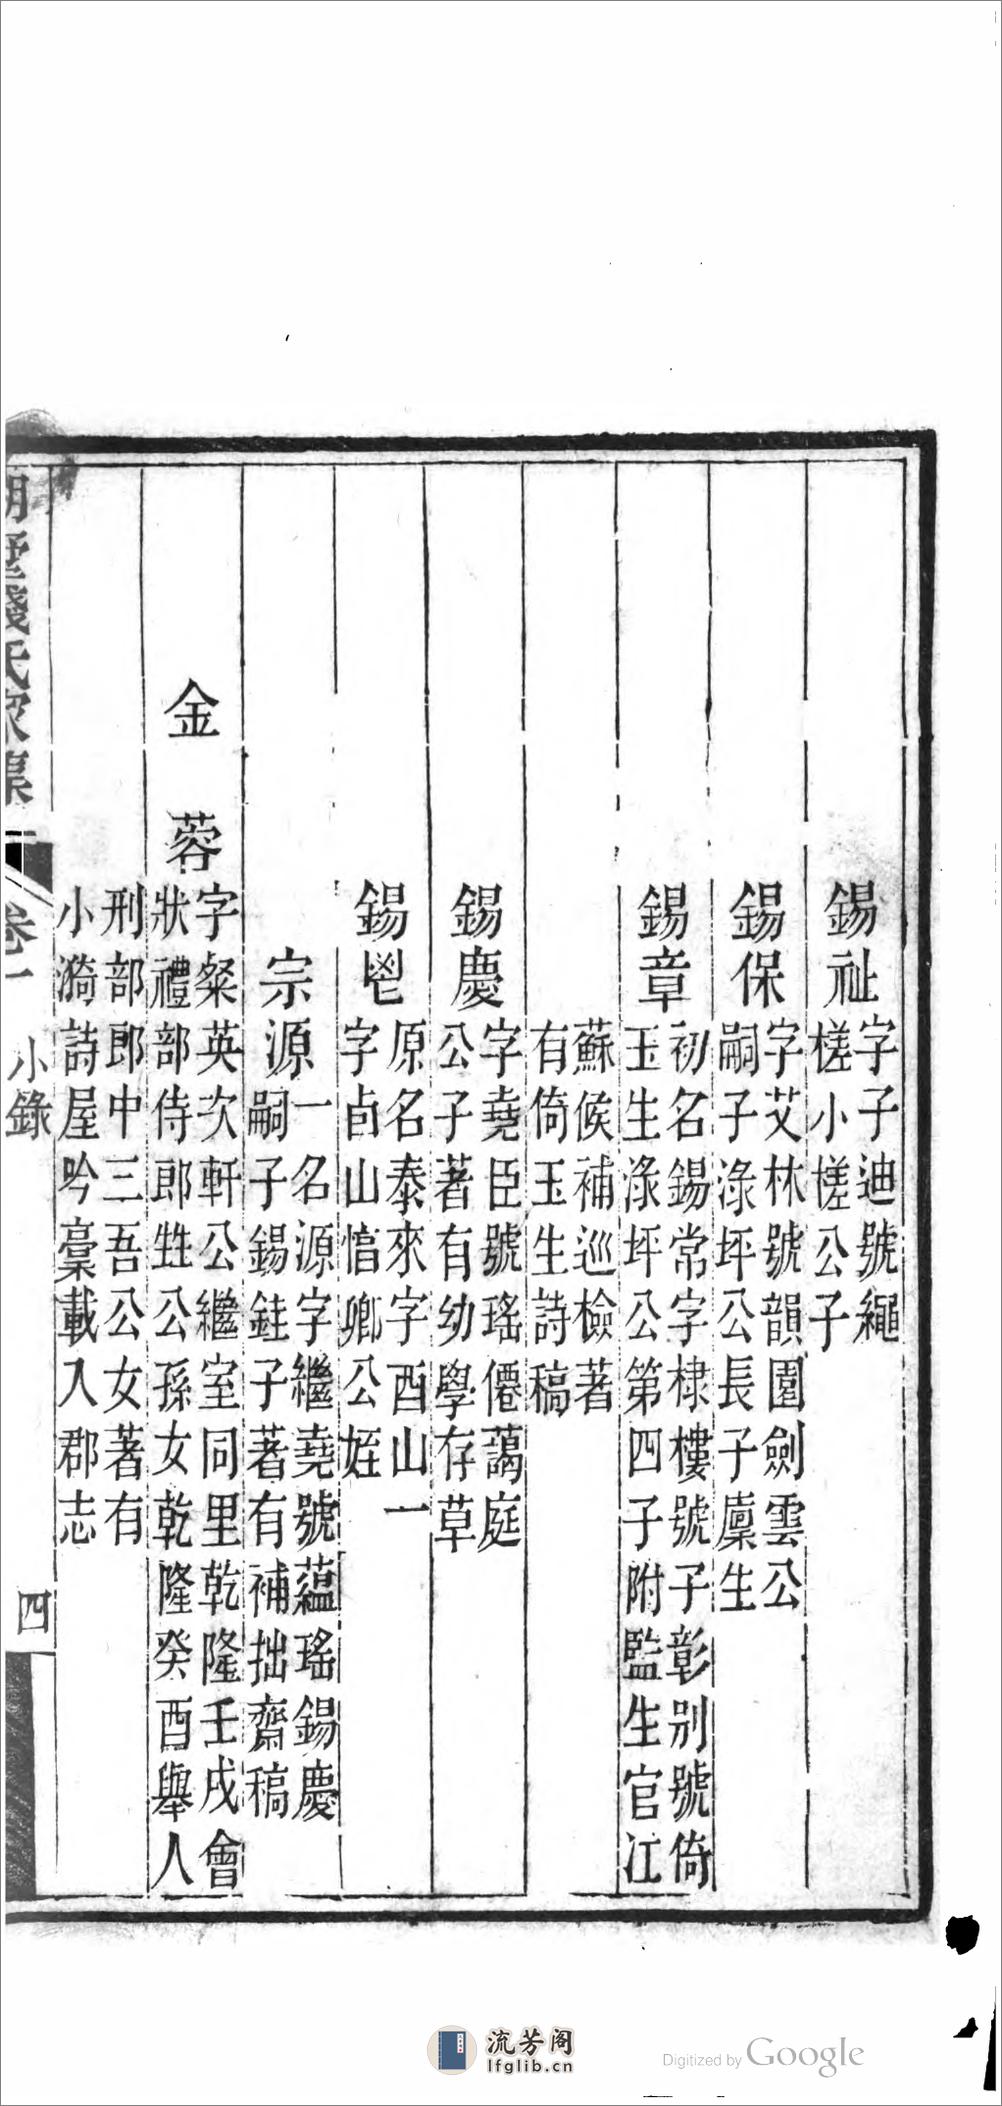 錫祉字子迪號繩
槎小槎公子
錫保字艾林號韻園劍雲公
嗣子淥坪公長子廩生
錫章初名錫常字棣樓號子彰别號倚
玉生淥坪公第四子附監生官江
蘇候補巡檢著
有倚玉生詩稿
錫慶字堯臣號瑤僊藹庭
公子著有幼學存草
錫鬯原名泰來字酉山一
字卣山愔卿公姪
宗源一名源字繼堯號蘊瑤錫慶
嗣子錫銈子著有補拙齋稿
金蓉字粲英次軒公繼室同里乾隆壬戌會
狀禮部侍郎甡公孫女乾隆癸酉舉人
刑部郎中三吾公女著有
小漪詩屋吟稾載入郡志
湖墅錢氏家集 卷一 小錄 四
流芳阁
lfglib.cn
Digitized by Google